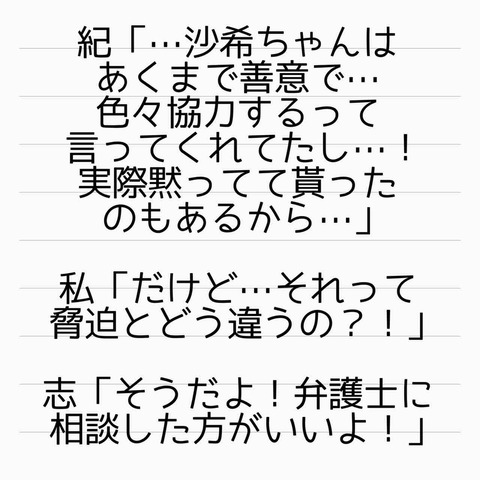 紀「…沙希ちゃんは
あくまで善意で…
色々協力するって
言ってくれてたし…！
実際黙ってて貰った
のもあるから…」
私「だけど…それって
脅迫とどう違うの？！」
志「そうだよ！弁護士に
相談した方がいいよ！」